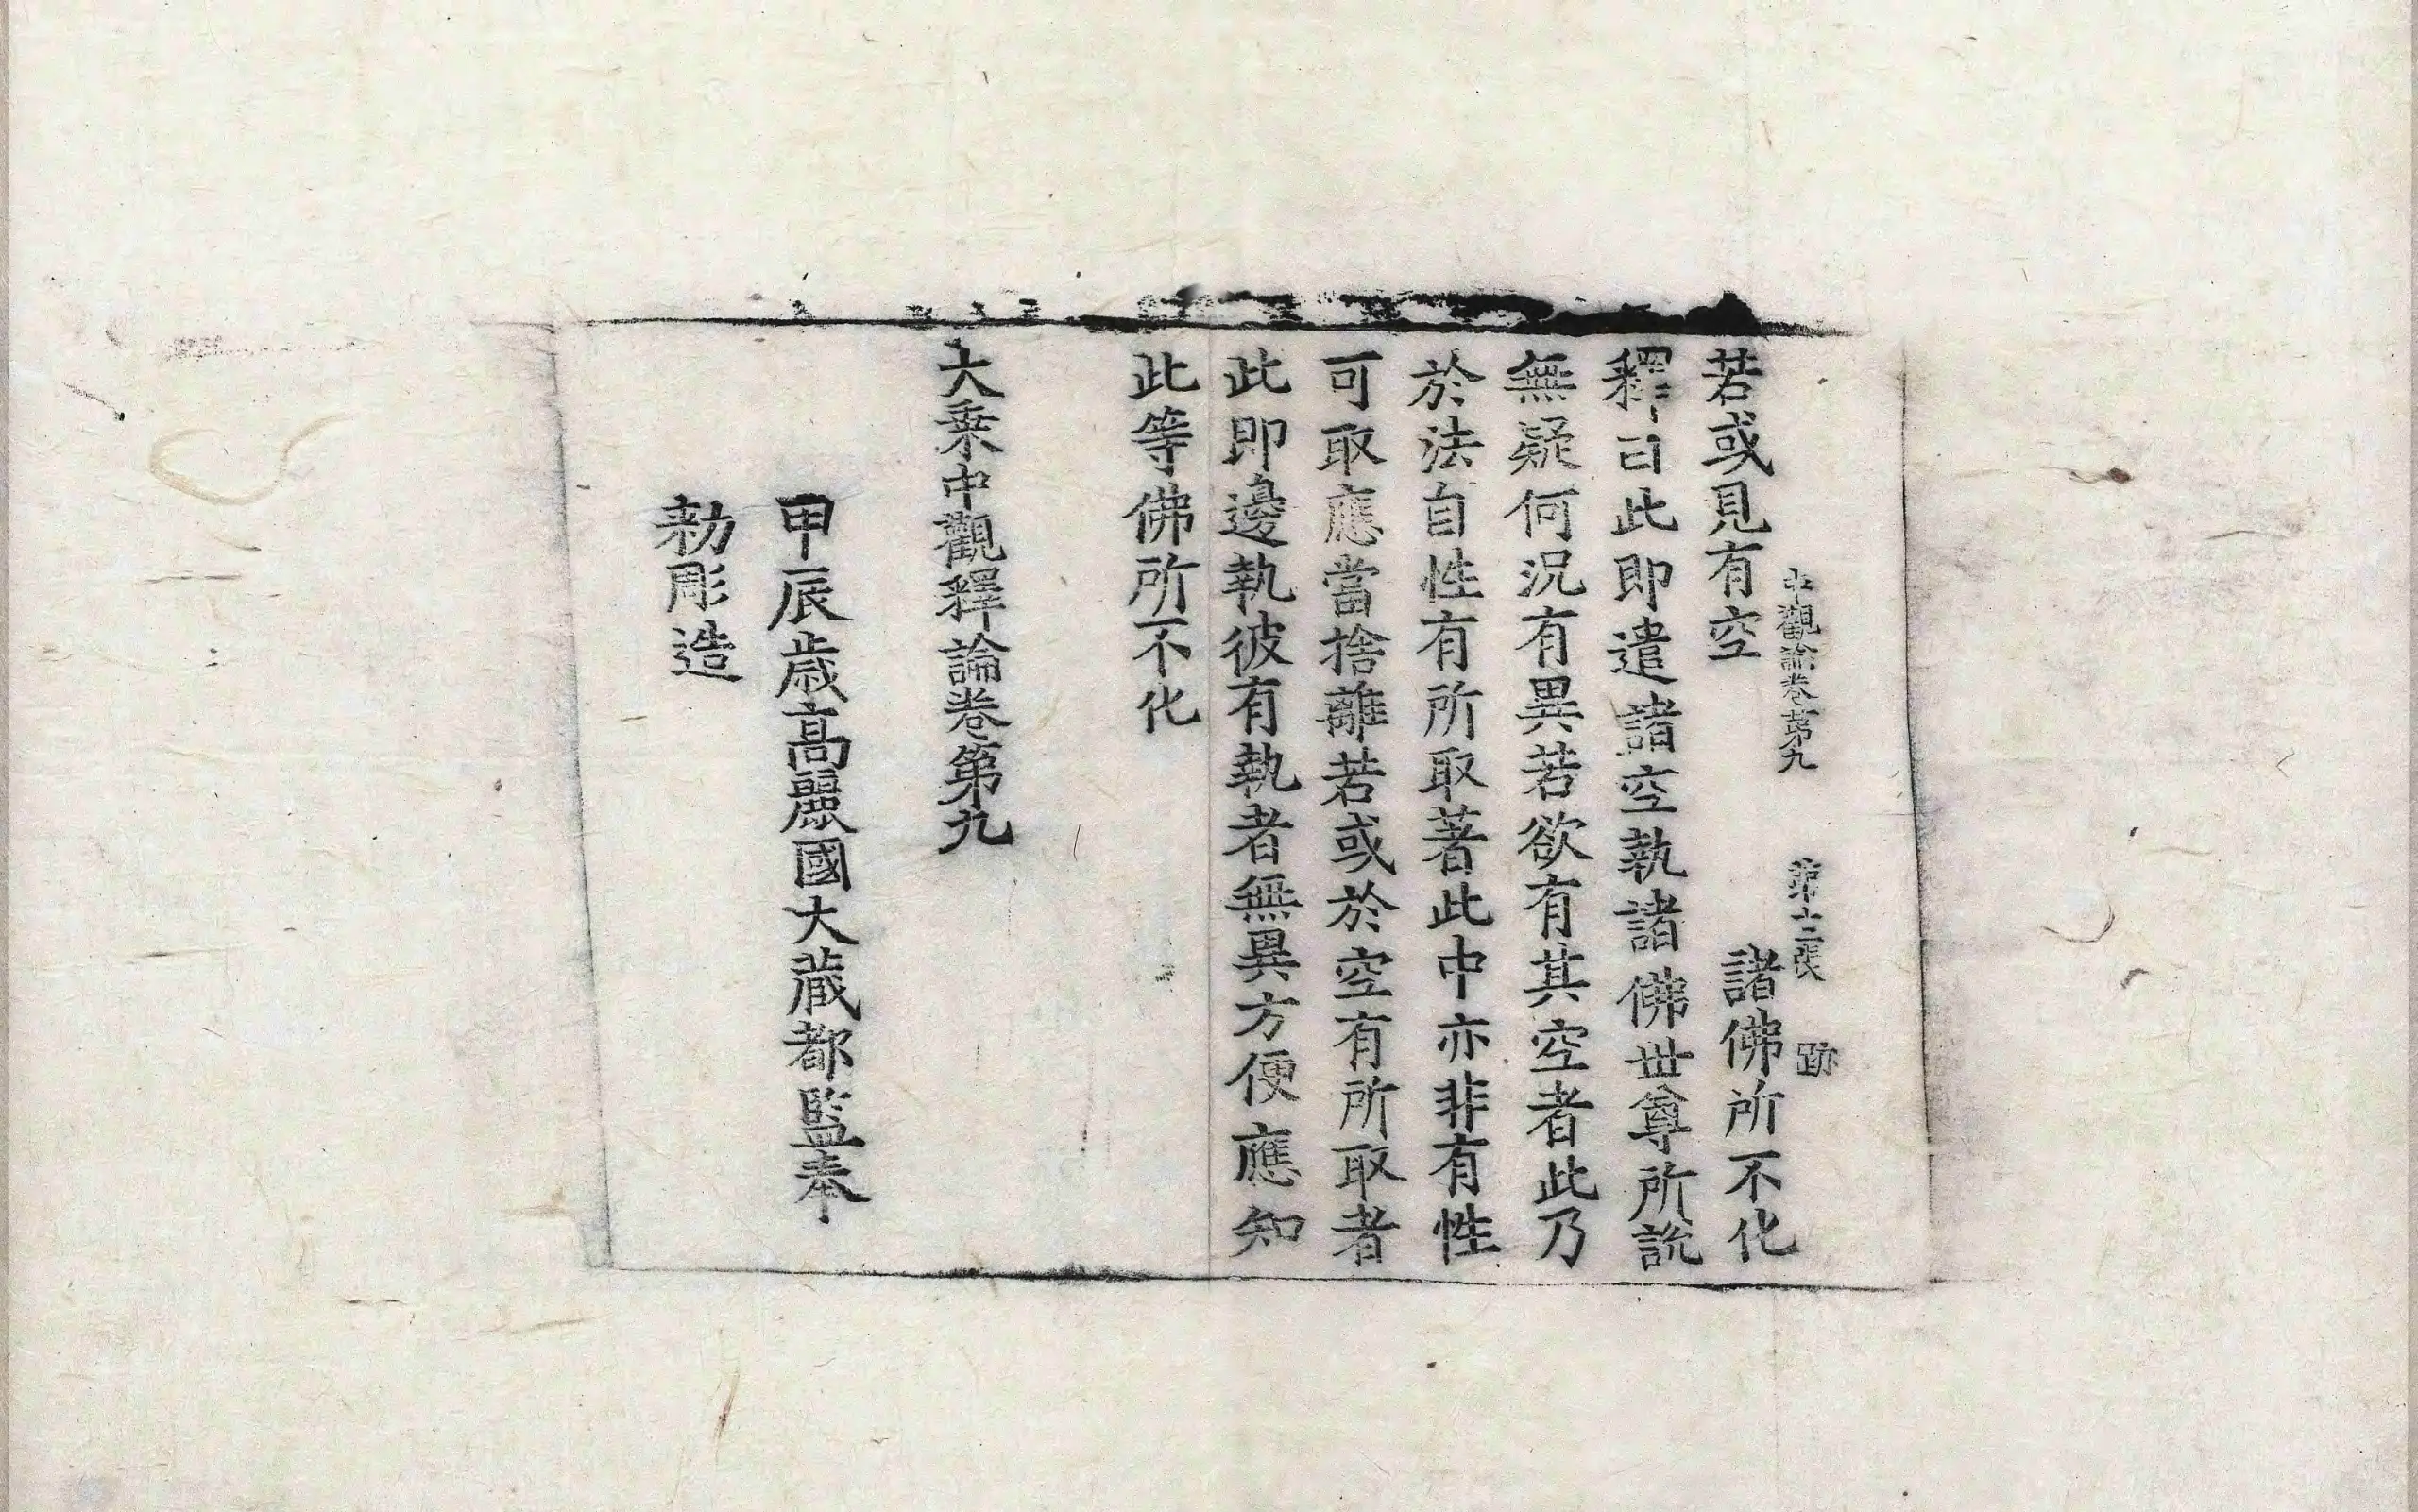 中觀論卷第九 第十二張 跡
若或見有空 諸佛所不化
釋曰此即遣諸空執諸佛世尊所說
無疑何況有異若欲有其空者此乃
於法自性有所取著此中亦非有性
可取應當捨離若或於空有所取者
此即邊執彼有執者無異方便應知
此等佛所不化
大乘中觀釋論卷第九
甲辰歲高麗國大藏都監奉
勑彫造